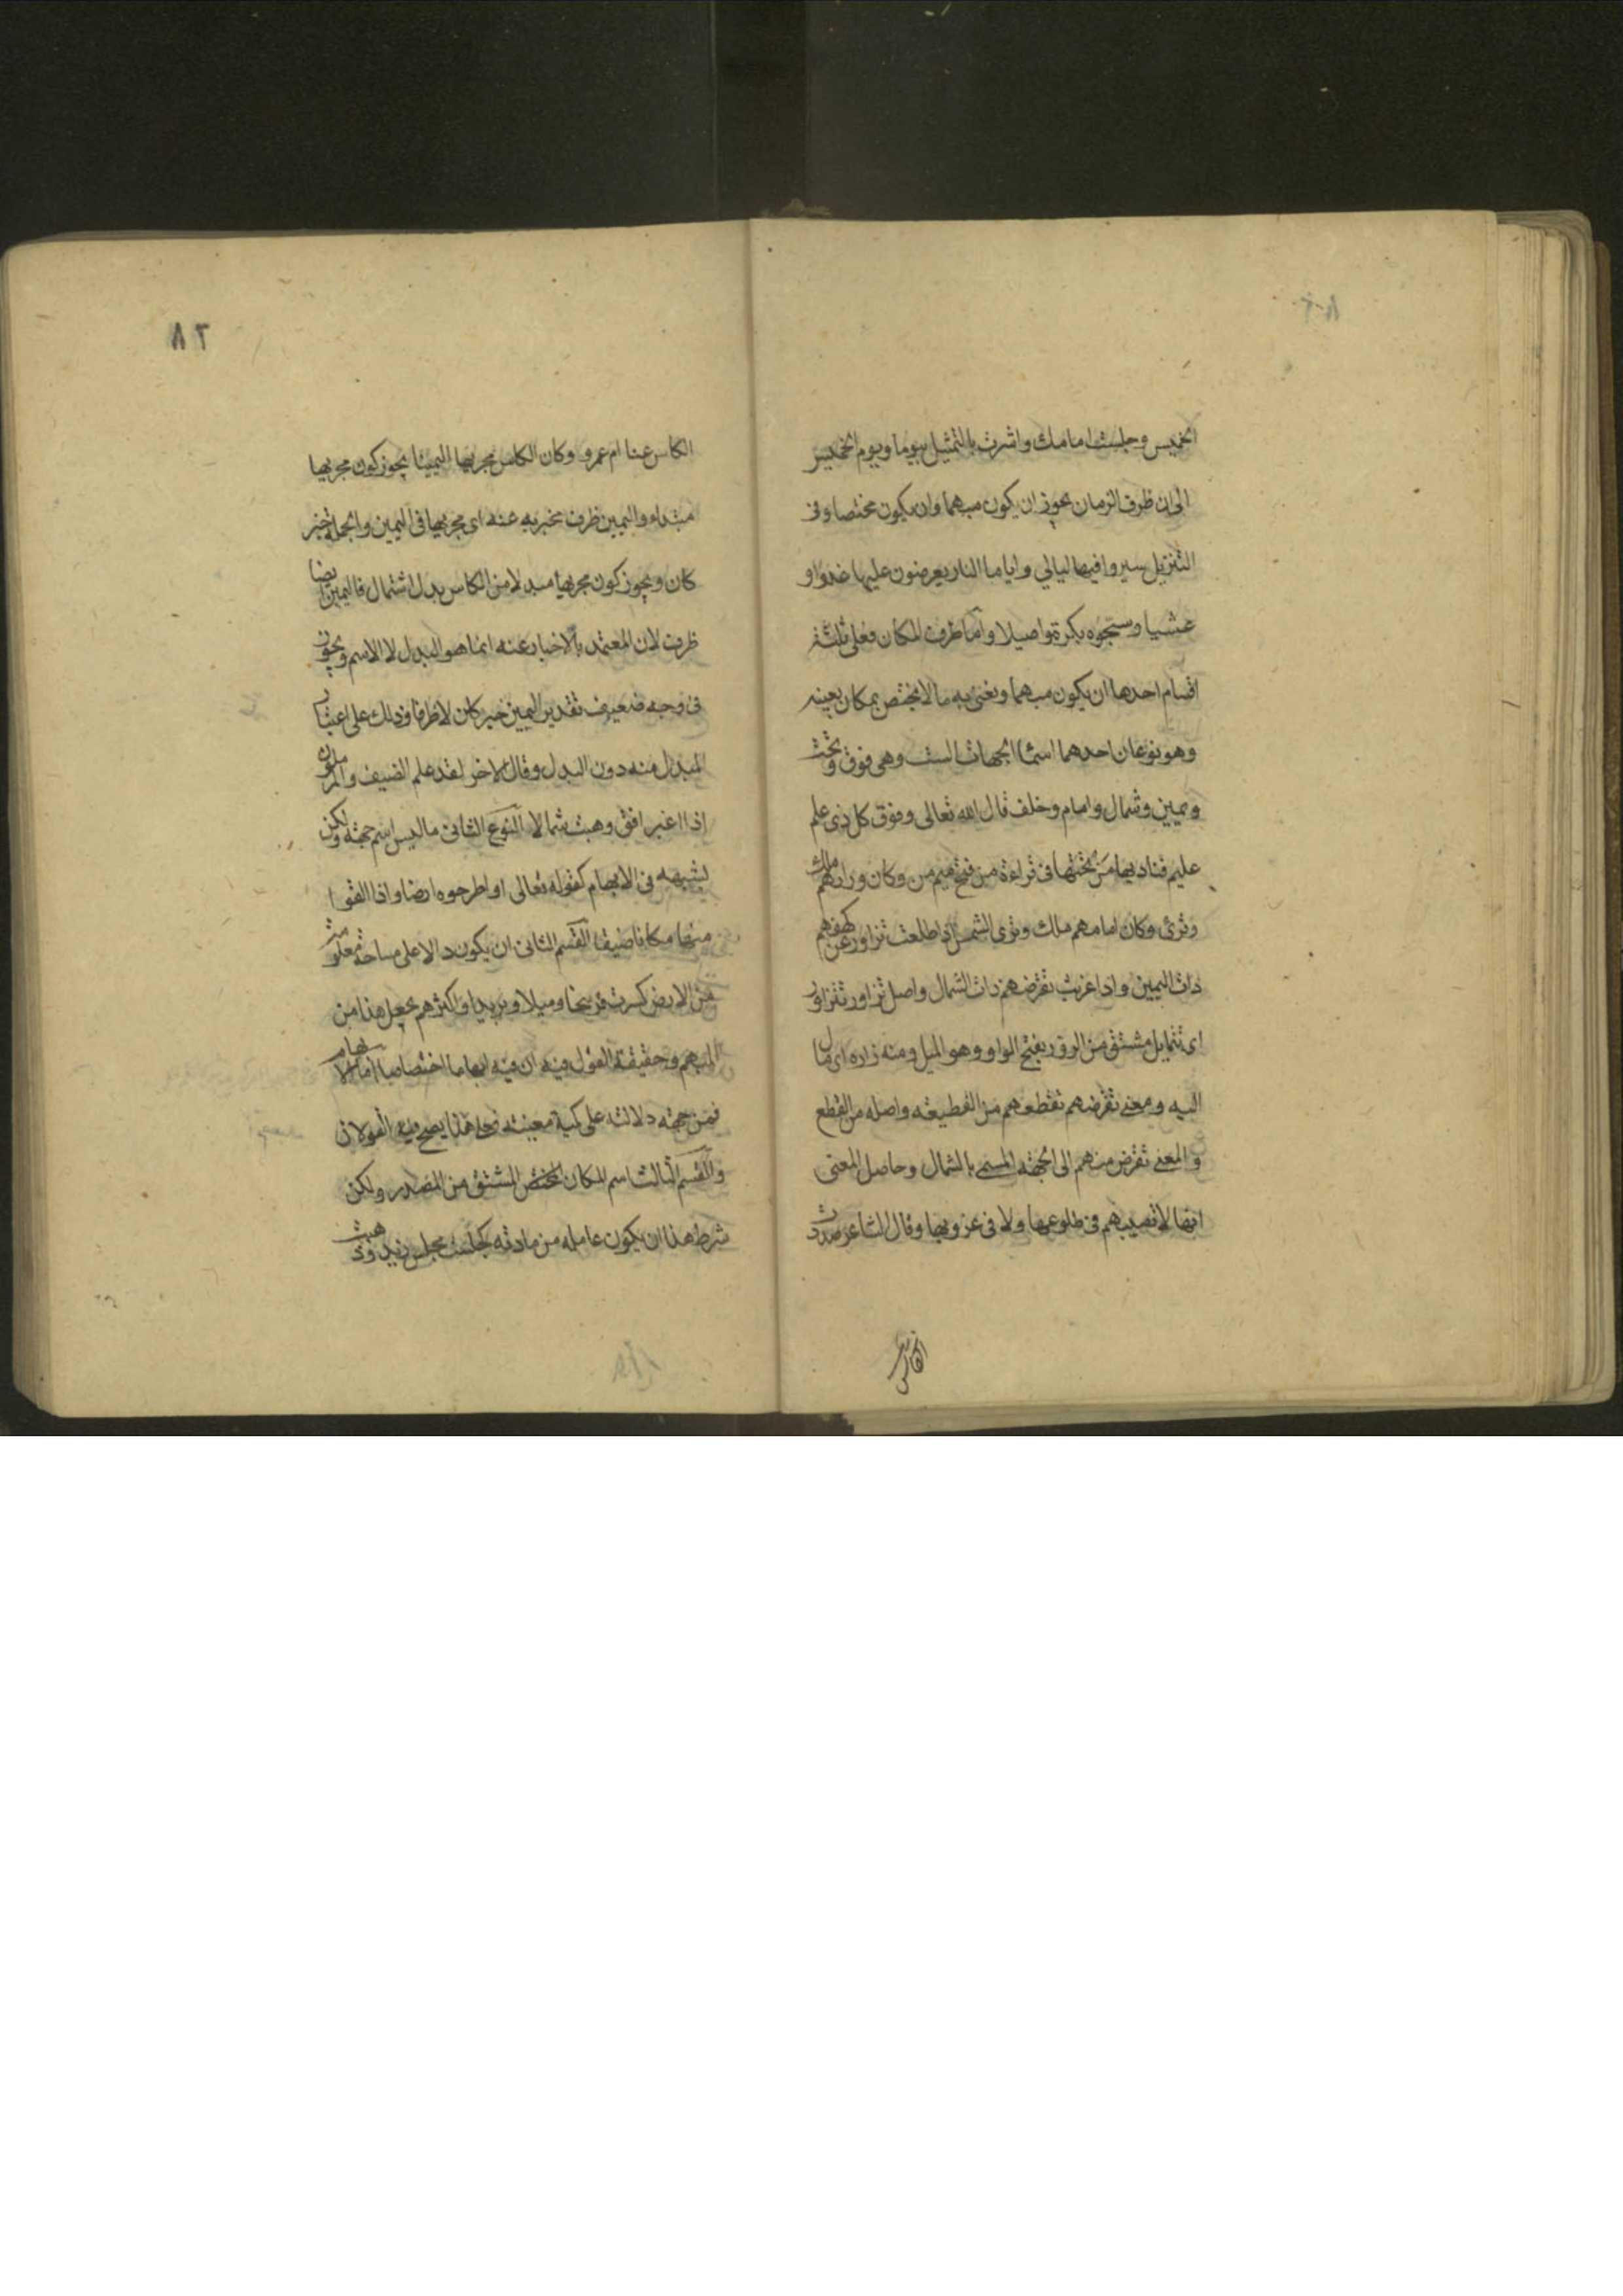 الخميس وجلست امامك واشرت بالتمثيل بيوما ويوم الخميس
الى ان ظرف الزمان يجوز ان يكون مبهما وان يكون مختصا وفى
التنزيل سيروا فيها ليالي واياما النار يعرضون عليها غدوا و
عشيا وسبحوه بكرة واصيلا واما ظرف المكان فعلى ثلثة
اقسام احدها ان يكون مبهما ونعنى به ما لا يختص بمكان بعينه
وهو نوعان احدهما اسما الجهات الست وهى فوق وتحت
ويمين وشمال وامام وخلف قال الله تعالى وفوق كل ذى علم
عليم فناديها من تحتها فى قراءة من فتح ميم من وكان ورائهم ملك
وقرئ وكان امامهم ملك وترى الشمس اذا طلعت تزاور عن كهفهم
ذات اليمين واذا غربت تقرضهم ذات الشمال واصل تزاور تتزاور
اى تتمايل مشتق من الزور بفتح الواو وهو الميل ومنه زاره اى مال
اليه ومعنى تقرضهم تقطعهم من القطيعة واصله من القطع
والمعنى تقرض منهم الى الجهة المسمى بالشمال وحاصل المعنى
انها لا تصيبهم فى طلوعها ولا فى غروبها وقال الشاعر صددت
الكاس
٨٢
الكاس عنا ام عمرو وكان الكاس مجريها اليمينا يجوز كون مجريها
مبتداء واليمين ظرف مخبر به عنه اى مجريها فى اليمين والجملة خبر
كان ويجوز كون مجريها مبدلا من الكاس بدل اشتمال فاليمين ايضا
ظرف لان المعتمد بالاخبار عنه انما هو البدل لا الاسم ويجوز
فى وجه ضعيف تقدير اليمين خبر كان لا ظرفا وذلك على اعتبار
المبدل منه دون البدل وقال الاخر لقد علم الضيف والمرملون
اذا اغبر افق وهبت شمالا النوع الثانى ما ليس اسم جهة ولكن
يشبهه فى الابهام كقوله تعالى او اطرحوه ارضا واذا القوا
منها مكانا ضيقا القسم الثانى ان يكون دالا على مساحة معلومة
من الارض كسرت فرسخا وميلا وبريدا واكثرهم يجعل هذا من
المبهم وحقيقة القول فيه ان فيه ابهاما اختصاصا اما الابهام
فمن جهة دلالته على كمية معينة فعلى هذا يصح فيه القولان
والقسم الثالث اسم المكان المختص المشتق من المصدر ولكن
شرط هذا ان يكون عامله من مادته كجلست مجلس زيد وذهبت